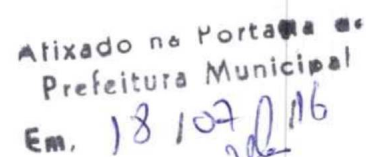 Afixado na Portaria da
Prefeitura Municipal
Em, 18/07/16